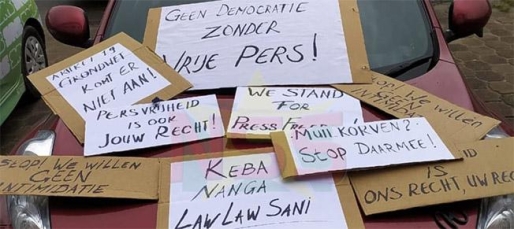 GEEN DEMOCRATIE
ZONDER
VRIJE PERS!
ARTIKEL 19
GRONDWET
KOMT ER
NIET AAN!
PERSVRIJHEID
IS OOK
JOUW RECHT!
WE STAND
FOR
PRESS
STOP! WE WILLEN
Stop DAARMEE!
STOP! WE WILLEN
GEEN
INTIMIDATIE
KEBA
NANGA
LAW LAW SANI
IS ONS RECHT, UW